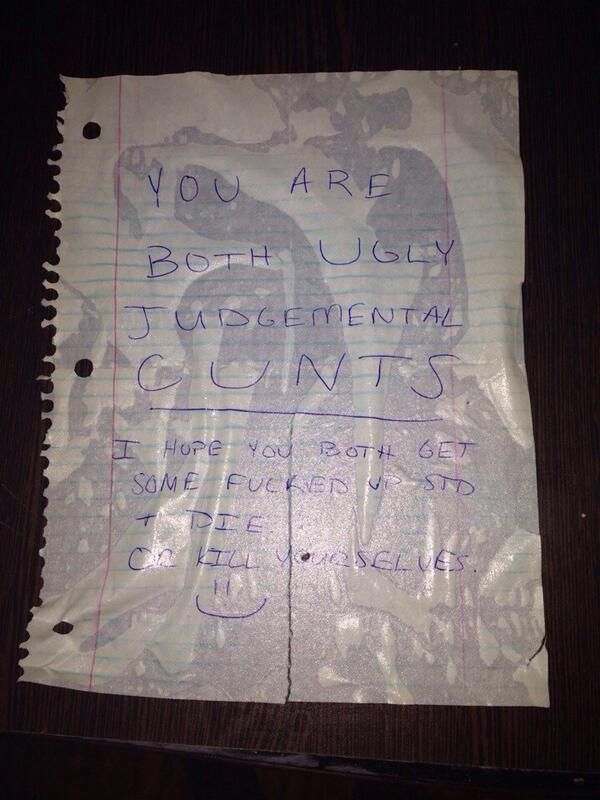 YOU ARE
BOTH UGLY
JUDGEMENTAL
CUNTS
I HOPE YOU BOTH GET
SOME FUCKED UP STD
+ DIE
OR KILL YOURSELVES.